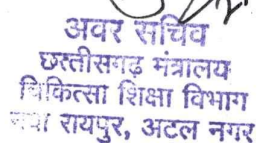 अवर सचिव
छत्तीसगढ़ मंत्रालय
चिकित्सा शिक्षा विभाग
नवा रायपुर, अटल नगर